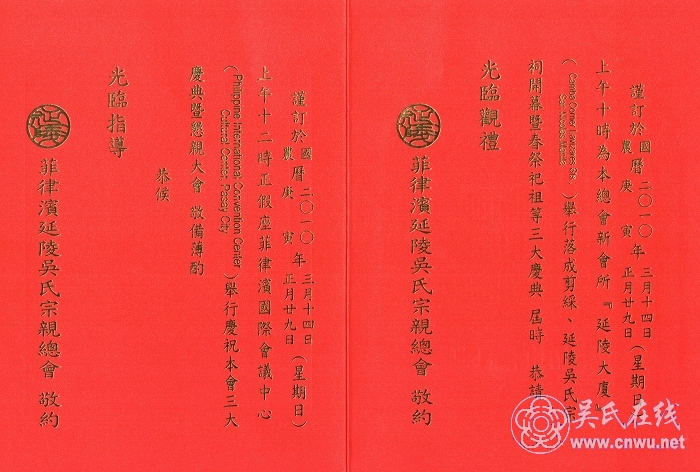 謹訂於國農曆二〇一〇庚寅年三月十四日正月廿九日(星期日
上午十時為本總會新會所『延陵大廈』
( Corner Lavezares Sts. San Nicolas Manila )舉行落成剪綵、延陵吳氏宗
祠開幕暨春祭祀祖等三大慶典 屆時 恭請
光臨觀禮
菲律濱延陵吳氏宗親總會 敬約
謹訂於國農曆二〇一〇庚寅年三月十四日正月廿九日(星期日)
上午十二時正假座菲律濱國際會議中心
(Philippine International Convention Center Cultural Center Pasay City)舉行慶祝本會三大
慶典暨懇親大會 敬備薄酌
恭候
光臨指導
菲律濱延陵吳氏宗親總會 敬約
吴氏在线
www.cnwu.net